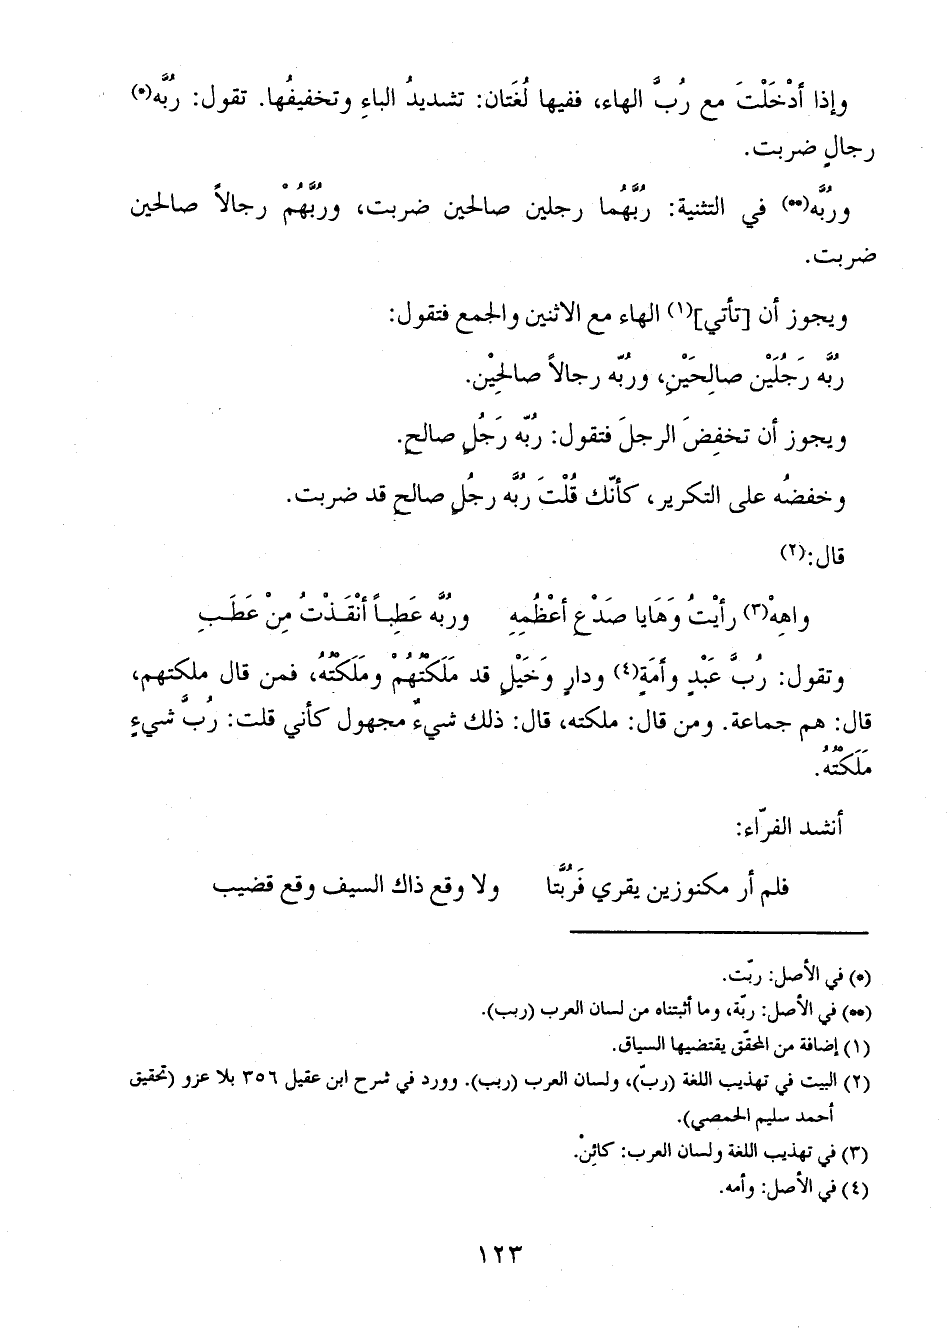 وإذا أدْخَلْتَ مع رُبَّ الهاء، ففيها لُغَتان: تشديدُ الباءِ وتخفيفُها. تقول: رُبَّه(*)
رجالٍ ضربت.
ورُبَّه(**) في التثنية: رُبَّهُما رجلين صالحين ضربت، ورُبَّهُمْ رجالاً صالحين
ضربت.
ويجوز أن [تأتي](١) الهاء مع الاثنين والجمع فتقول:
رُبَّه رَجُلَيْن صالِحَيْنِ، ورُبّه رجالاً صالحِيْن.
ويجوز أن تخفِضَ الرجلَ فتقول: رُبّه رَجُلٍ صالحٍ.
وخفضُه على التكرير، كأنّك قُلْتَ رُبَّه رجُلٍ صالحٍ قد ضربت.
قال:(٢)
واهِهْ(٣) رأيْتُ وَهَايا صَدْع أعْظُمِهِ ورُبَّه عَطِباً أنْقَذْتُ مِنْ عَطَبِ
وتقول: رُبَّ عَبْدٍ وأمَةٍ(٤) ودارٍ وخَيْلٍ قد مَلَكْتُهُمْ ومَلَكْتُهُ، فمن قال ملكتهم،
قال: هم جماعة. ومن قال: ملكته، قال: ذلك شيءٌ مجهول كأني قلت: رُبَّ شيءٍ
مَلَكْتُهُ.
أنشد الفرّاء:
فلم أر مكنوزين يقري فَرُبَّتا ولا وقع ذاك السيف وقع قضيب
(*) في الأصل: ربّت.
(**) في الأصل: ربّة، وما أثبتناه من لسان العرب (ربب).
(١) إضافة من المحقّق يقتضيها السياق.
(٢) البيت في تهذيب اللغة (ربّ)، ولسان العرب (ربب). وورد في شرح ابن عقيل ٣٥٦ بلا عزو (تحقيق
أحمد سليم الحمصي).
(٣) في تهذيب اللغة ولسان العرب: كائِنْ.
(٤) في الأصل: وأمه.
١٢٣